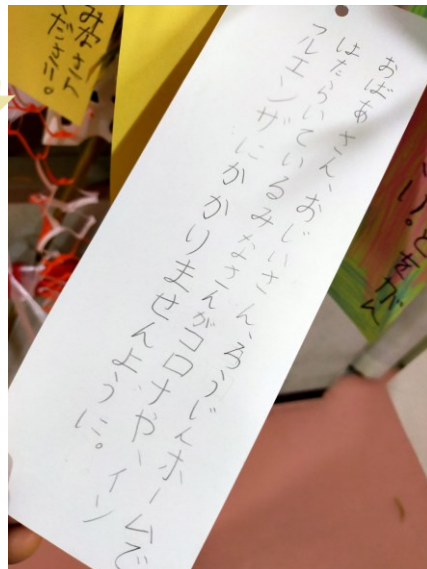 とをがん
おばあさん、おじいさん、ろうじんホームで
はたらいているみなさんがコロナや、イン
フルエンザにかかりませんように。
みなさん
ください。